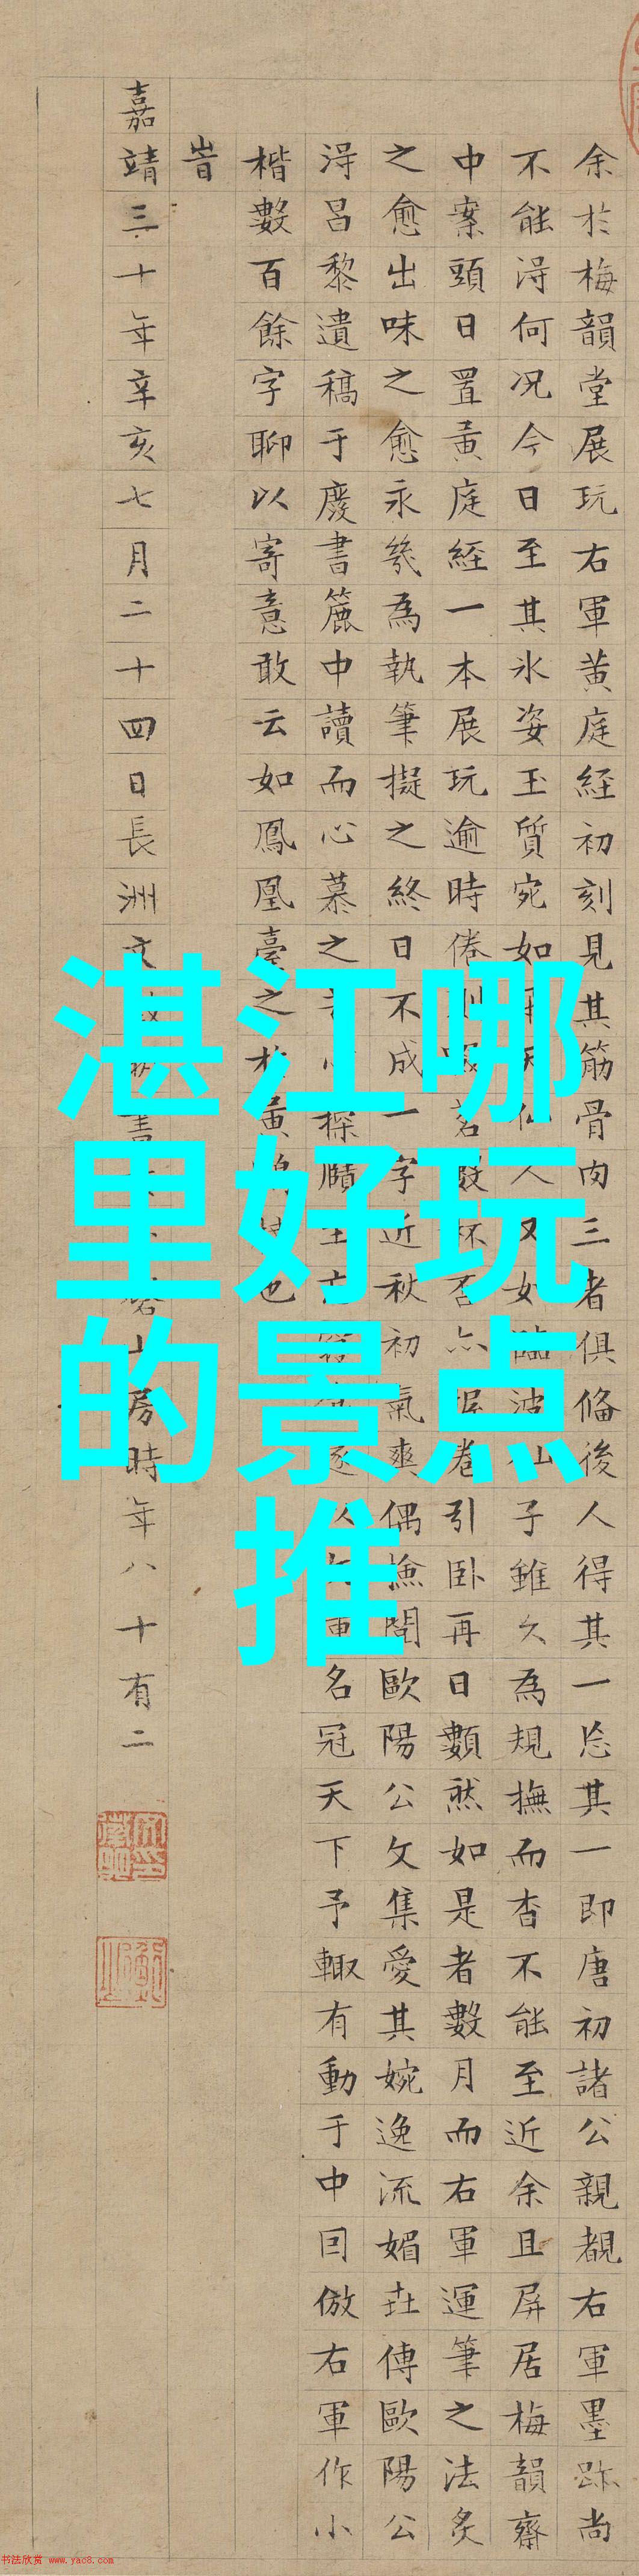 湛江哪
里好玩
的景点
推
余於梅韻堂展玩右軍黄庭経初刻見其筋骨肉三者俱俻後人得其一忘其一即唐初諸公親覩右軍墨跡尚
不能淂何况今日至其氷姿玉質宛如天仙人又如臨波仙子雖久為規撫而杳不能至近余且屏居梅韻齋
中案頭日置黄庭経一本展玩逾時倦則啜茗數杯否亦握卷引卧再日數然如是者數月而右軍運筆之法炙
之愈出味之愈永幾為執筆擬之終日不成一字近秋初氣爽偶撿閲歐陽公文集愛其婉逸流媚傳歐陽公
淂昌黎遺稿于廢書簏中讀而心慕之探賾至遂名冠天下予輙有動于中囙倣右軍作小
楷數百餘字聊以寄意敢云如鳳凰臺之於黄也
旹
嘉靖三十年辛亥七月二十四日長洲文書磬山房時年八十有二
书法欣赏 www.yac8.com